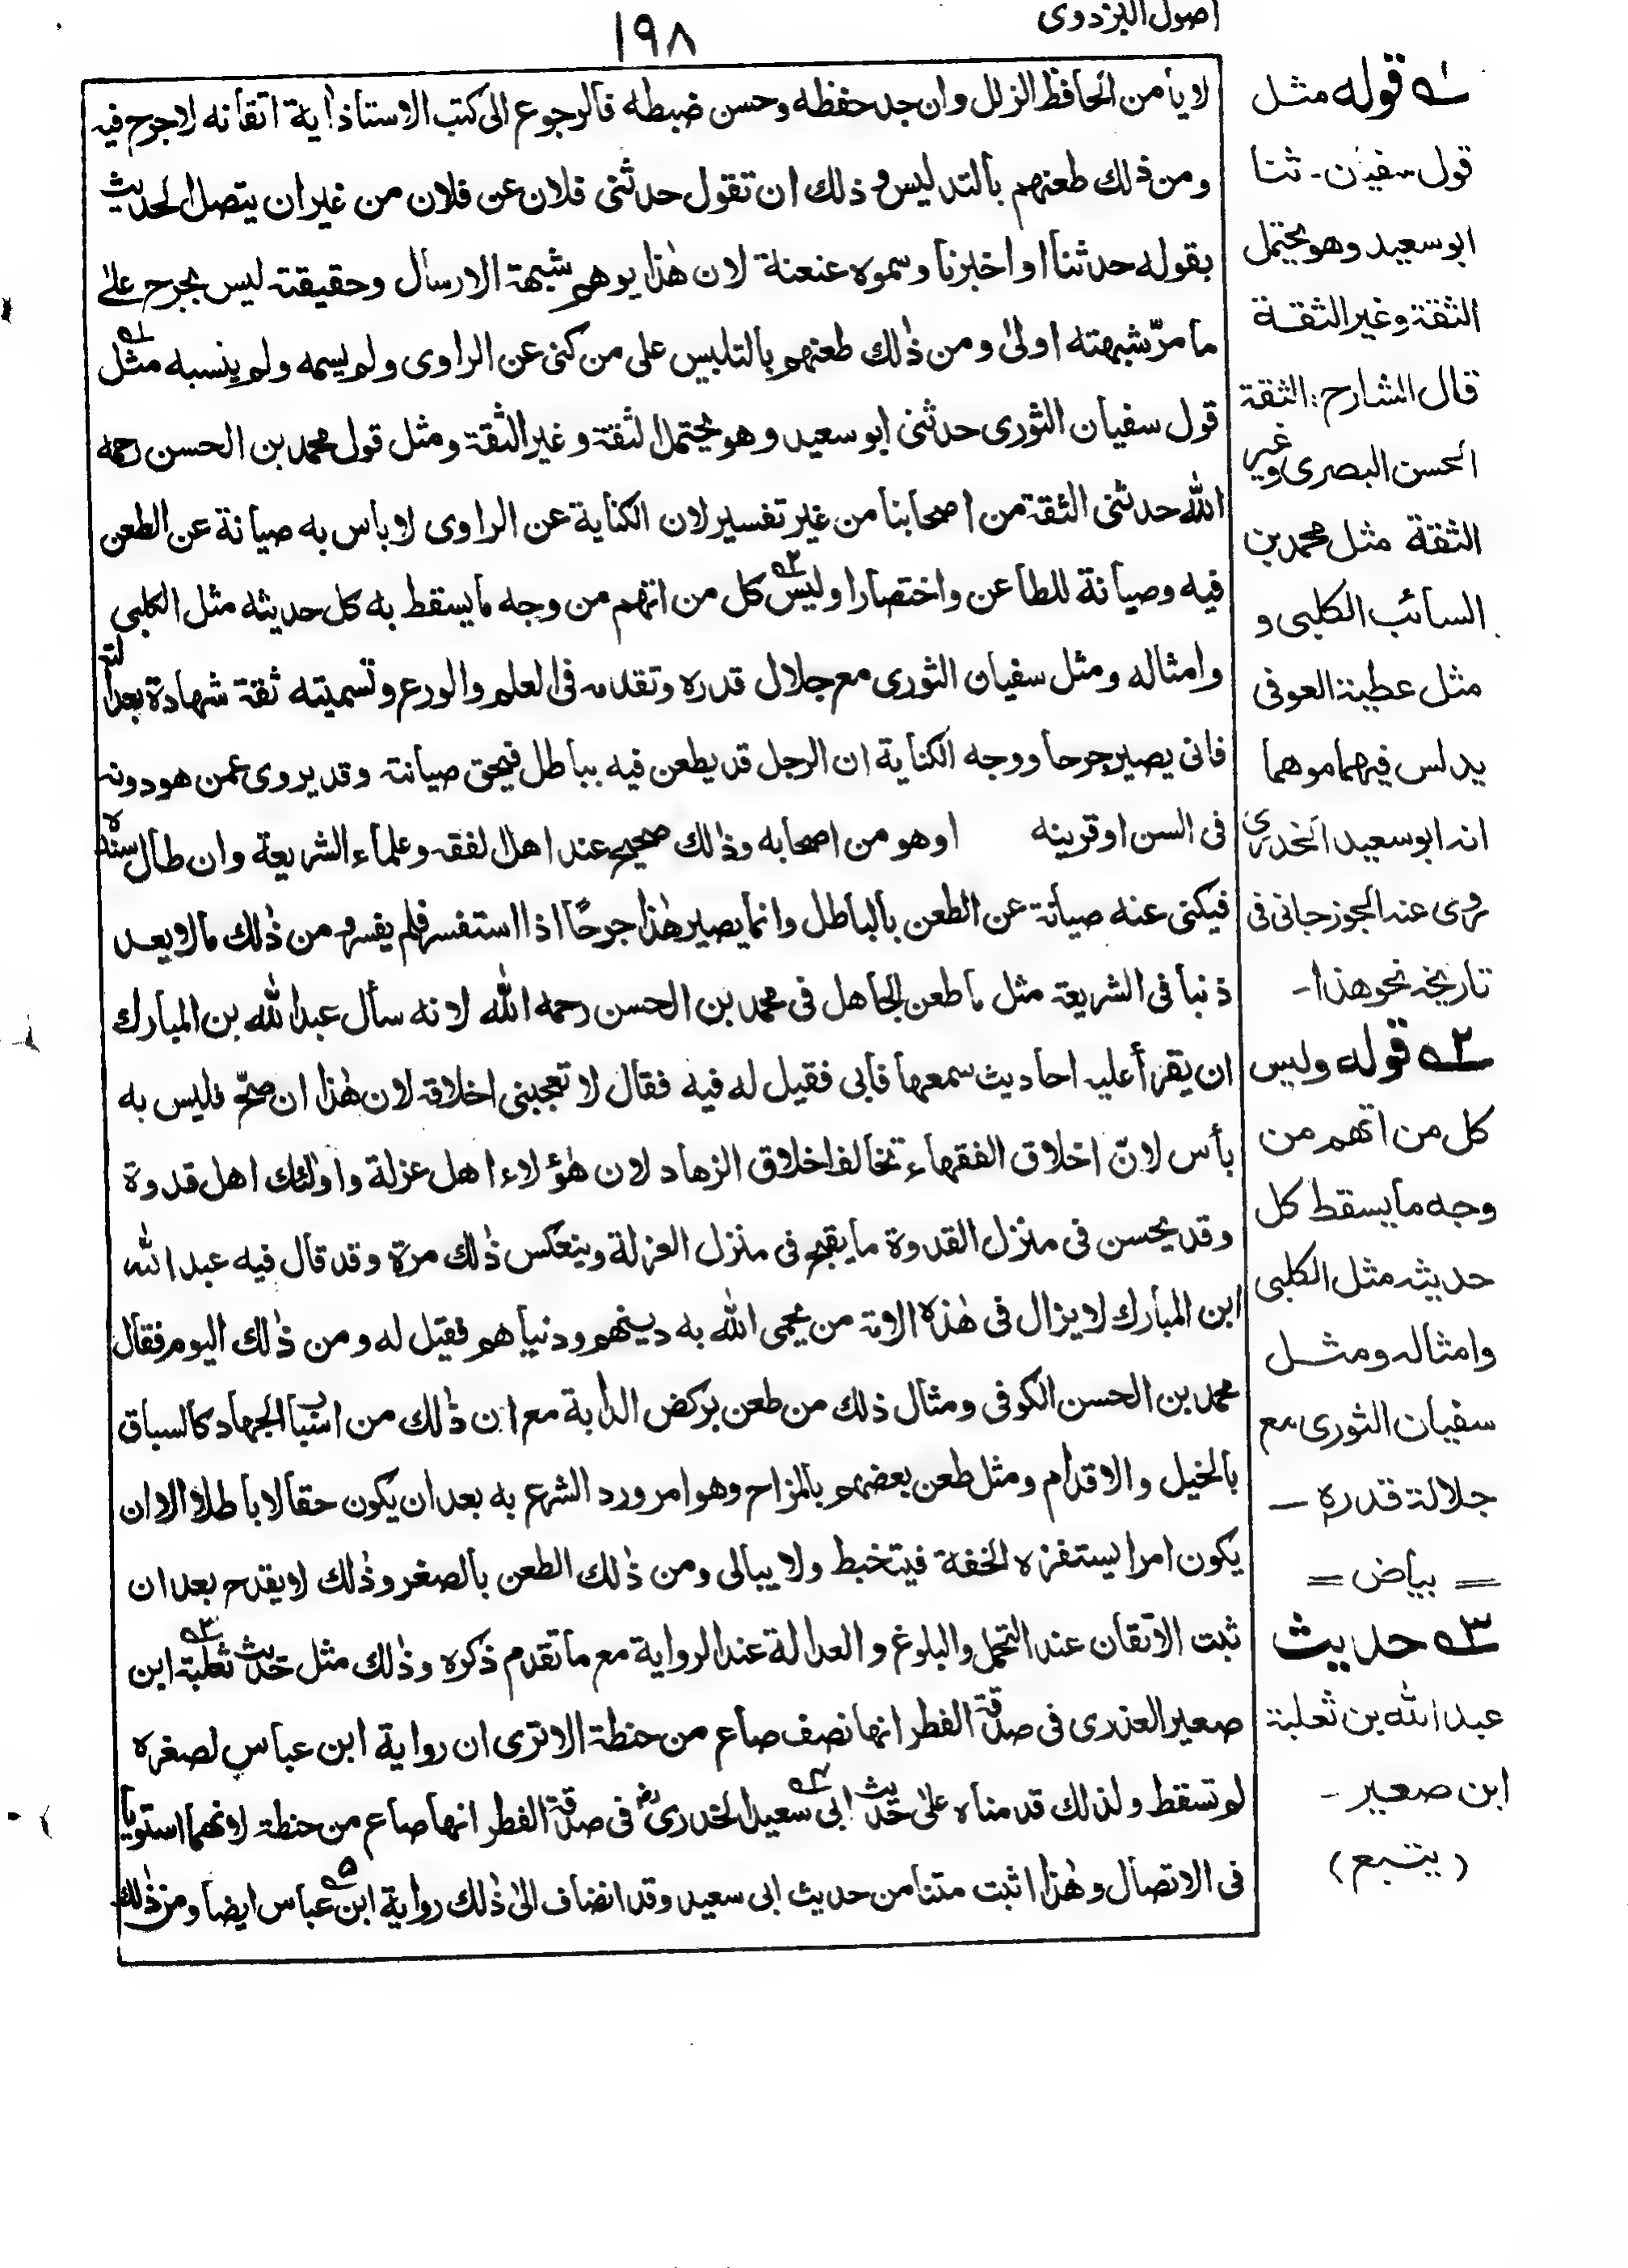 اصول البزدوی
۱۹۸
لا یأمن الحافظ الزلل وان جد حفظه وحسن ضبطه فالرجوع الی کتب الاستاذ اٰیة اتقانه لا جرح فیه
ومن ذٰلك طعنهم بالتدلیس و ذلك ان تقول حدثنی فلان عن فلان من غیر ان یتصل الحدیث
بقوله حدثنا او اخبرنا وسموه عنعنة لان هٰذا یوهم شبهة الارسال وحقیقتہ لیس بجرح علیٰ
ما مرّ شبهته اولیٰ ومن ذٰلك طعنهم بالتلبیس علی من کنی عن الراوی ولم یسمه ولم ینسبه مثل ۱ه
قول سفیان الثوری حدثنی ابو سعید وهو یحتمل الثقة وغیر الثقة ومثل قول محمد بن الحسن رحمه
اللّٰه حدثنی الثقة من اصحابنا من غیر تفسیر لان الکنایة عن الراوی لا باس به صیانة عن الطعن
فیه وصیانة للطاعن واختصارا ولیس ۲ه کل من اتهم من وجه ما یسقط به کل حدیثه مثل الکلبی
وامثاله ومثل سفیان الثوری مع جلال قدره وتقدمه فی العلم والورع وتسمیته ثقة شهادة بعدالته
فانی یصیر جرحا ووجه الکنایة ان الرجل قد یطعن فیه بباطل فیحق صیانتہ وقد یروی عمن هو دونہ
فی السن او قرینه او هو من اصحابه وذٰلك صحیح عند اهل الفقہ وعلماء الشریعة وان طال سنده
فیکنی عنه صیانة عن الطعن بالباطل وانما یصیر هٰذا جرحًا اذا استفسر فلم یفسر ومن ذٰلك ما لا یعد
ذنبا فی الشریعۃ مثل ما طعن الجاهل فی محمد بن الحسن رحمه اللّٰه لانه سأل عبد اللّٰه بن المبارك
ان یقرأ علیہ احادیث سمعها فابی فقیل له فیه فقال لا تعجبنی اخلاقہ لان هٰذا ان صحّ فلیس به
بأس لانّ اخلاق الفقهاء تخالف اخلاق الزهاد لان هٰؤلاء اهل عزلة واولٰئك اهل قدوة
وقد یحسن فی منزل القدوة ما یقبح فی منزل العزلة وینعکس ذٰلك مرة وقد قال فیه عبد اللّٰه
ابن المبارك لا یزال فی هٰذه الامۃ من یحمی اللّٰه به دینهم ودنیاهم فقیل له ومن ذٰلك الیوم فقال
محمد بن الحسن الکوفی ومثال ذلك من طعن برکض الدابة مع ان ذٰلك من اسباب الجهاد کالسباق
بالخیل والاقدام ومثل طعن بعضهم بالمزاح وهو امر ورد الشرع به بعد ان یکون حقا لا باطلا الا ان
یکون امرا یستفزه الخفة فیتخبط ولا یبالی ومن ذٰلك الطعن بالصغر وذٰلك لا یقدح بعد ان
ثبت الاتقان عند التحمل والبلوغ والعدالة عند الروایة مع ما تقدم ذکره وذٰلك مثل حدیث ثعلبۃ ۳ه ابن
صعیر العذری فی صدقۃ الفطر انها نصف صاع من حنطۃ الا تری ان روایة ابن عباس لصغره
لم تسقط ولذلك قدمناه علیٰ حدیث ابی ۴ه سعید الخدریؓ فی صدقۃ الفطر انها صاع من حنطۃ لانهما استویا
فی الاتصال وهٰذا اثبت متنا من حدیث ابی سعید وقد انضاف الیٰ ذٰلك روایة ابن ۵ه عباس ایضا ومن ذٰلك
۱ه قوله مثل
قول سفین۔ ثنا
ابو سعید وهو یحتمل
الثقۃ وغیر الثقۃ
قال الشارح: الثقۃ
الحسن البصری وغیر
الثقة مثل محمد بن
السائب الکلبی و
مثل عطیۃ العوفی
یدلس فیهما موهما
انہ ابو سعید الخدری
روی عنہ الجوزجانی فی
تاریخہ نحو هذا۔
۲ه قوله ولیس
کل من اتهم من
وجه ما یسقط کل
حدیثہ مثل الکلبی
وامثالہ ومثل
سفیان الثوری مع
جلالۃ قدرہ —
= بیاض =
۳ه حدیث
عبد اللّٰه بن ثعلبۃ
ابن صعیر -
(یتبع)